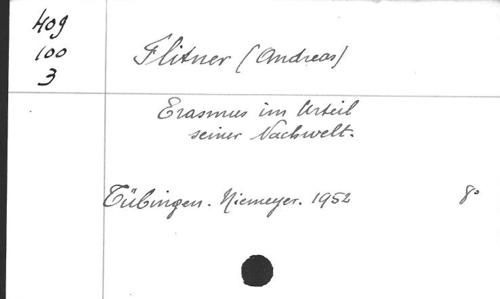 409
100
3
Flitner (Andreas)
Erasmus im Urteil
seiner Nachwelt.
Tübingen. Niemeyer. 1952 8°